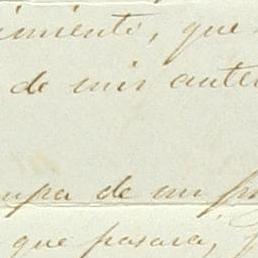 imiento, que
de mis ante
upa de un pr
que pasara,